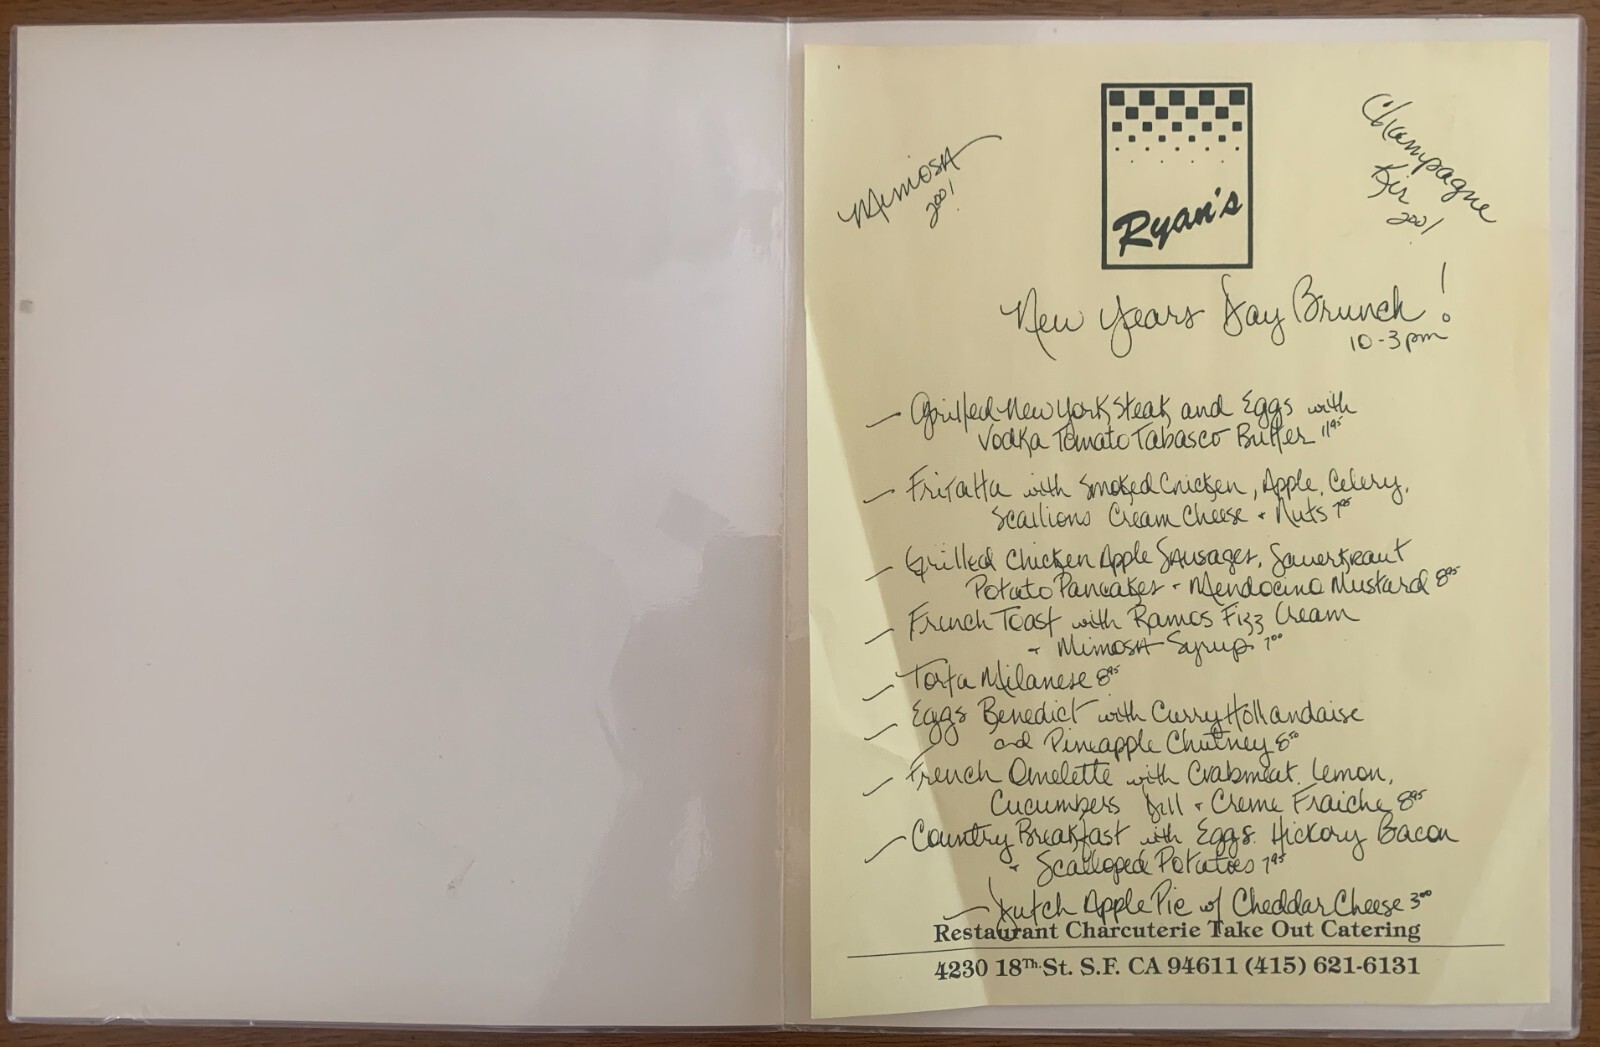 Ryan's
Mimosa
2001
Champagne
Kir
2001
New Years Day Brunch!
10-3pm
— Grilled New York Steak and Eggs with
Vodka Tomato Tabasco Butter 11.95
— Fritatta with Smoked Chicken, Apple, Celery,
Scallions Cream Cheese + Nuts 7.95
— Grilled Chicken Apple Sausages, Sauerkraut
Potato Pancakes + Mendocino Mustard 8.95
— French Toast with Ramos Fizz Cream
+ Mimosa Syrup 7.00
— Torta Milanese 8.95
— Eggs Benedict with Curry Hollandaise
and Pineapple Chutney 8.50
— French Omelette with Crabmeat, Lemon,
Cucumbers Dill + Creme Fraiche 8.95
— Country Breakfast with Eggs, Hickory Bacon
+ Scalloped Potatoes 7.95
— Dutch Apple Pie w/ Cheddar Cheese 3.00
Restaurant Charcuterie Take Out Catering
4230 18Th. St. S.F. CA 94611 (415) 621-6131